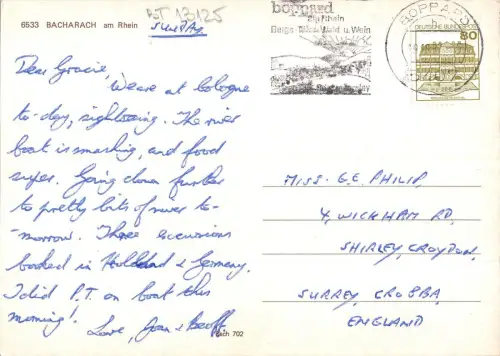 6533 BACHARACH am Rhein
SUNDAY
Dear Gracie,
We are at Cologne
to-day, sightseeing. The river
boat is smashing, and food
super. Going down further
to pretty bits of river to-
morrow. Three excursions
booked in Holland & Germany.
I did P.T. on boat this
morning!
Love, Joan & Geoff.
Bach 702
boppard
am Rhein
Berge Wald u. Wein
BOPPARD
DEUTSCHE BUNDESPOST
80
MISS. G.E. PHILIP,
4, WICKHAM RD,
SHIRLEY, CROYDON,
SURREY, CRO8BA,
ENGLAND